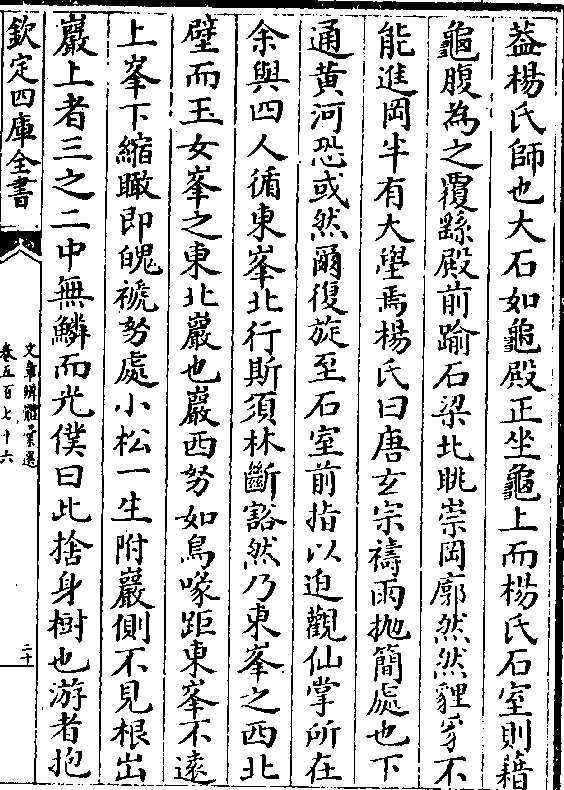 葢楊氏師也大石如龜殿正坐龜上而楊氏石室則籍
龜腹為之覆繇殿前踰石梁北眺崇岡廓然然貍豸不
能進岡半有大壆焉楊氏曰唐玄宗禱雨拋簡處也下
通黄河恐或然爾復旋至石室前指以迫觀仙掌所在
余與四人循東峯北行斯須林斷豁然乃東峯之西北
壁而玉女峯之東北巖也巖西努如鳥喙距東峯不遠
上峯下縮瞰即魄褫努處小松一生附巖側不見根出
巖上者三之二中無鱗而光僕曰此捨身樹也游者抱
欽定四庫全書
文章辨體彚選
卷五百七十六
二十